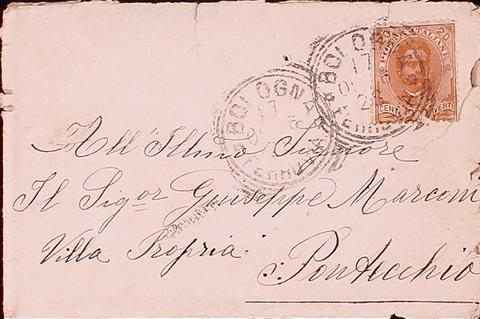 BOLOGNA
FERROVIA
BOLOGNA
FERROVIA
POSTE ITALIANE
20
CENT VENTI
All' Illmo Signore
Il Sigor Giuseppe Marconi
Villa Propria
s: Pontecchio